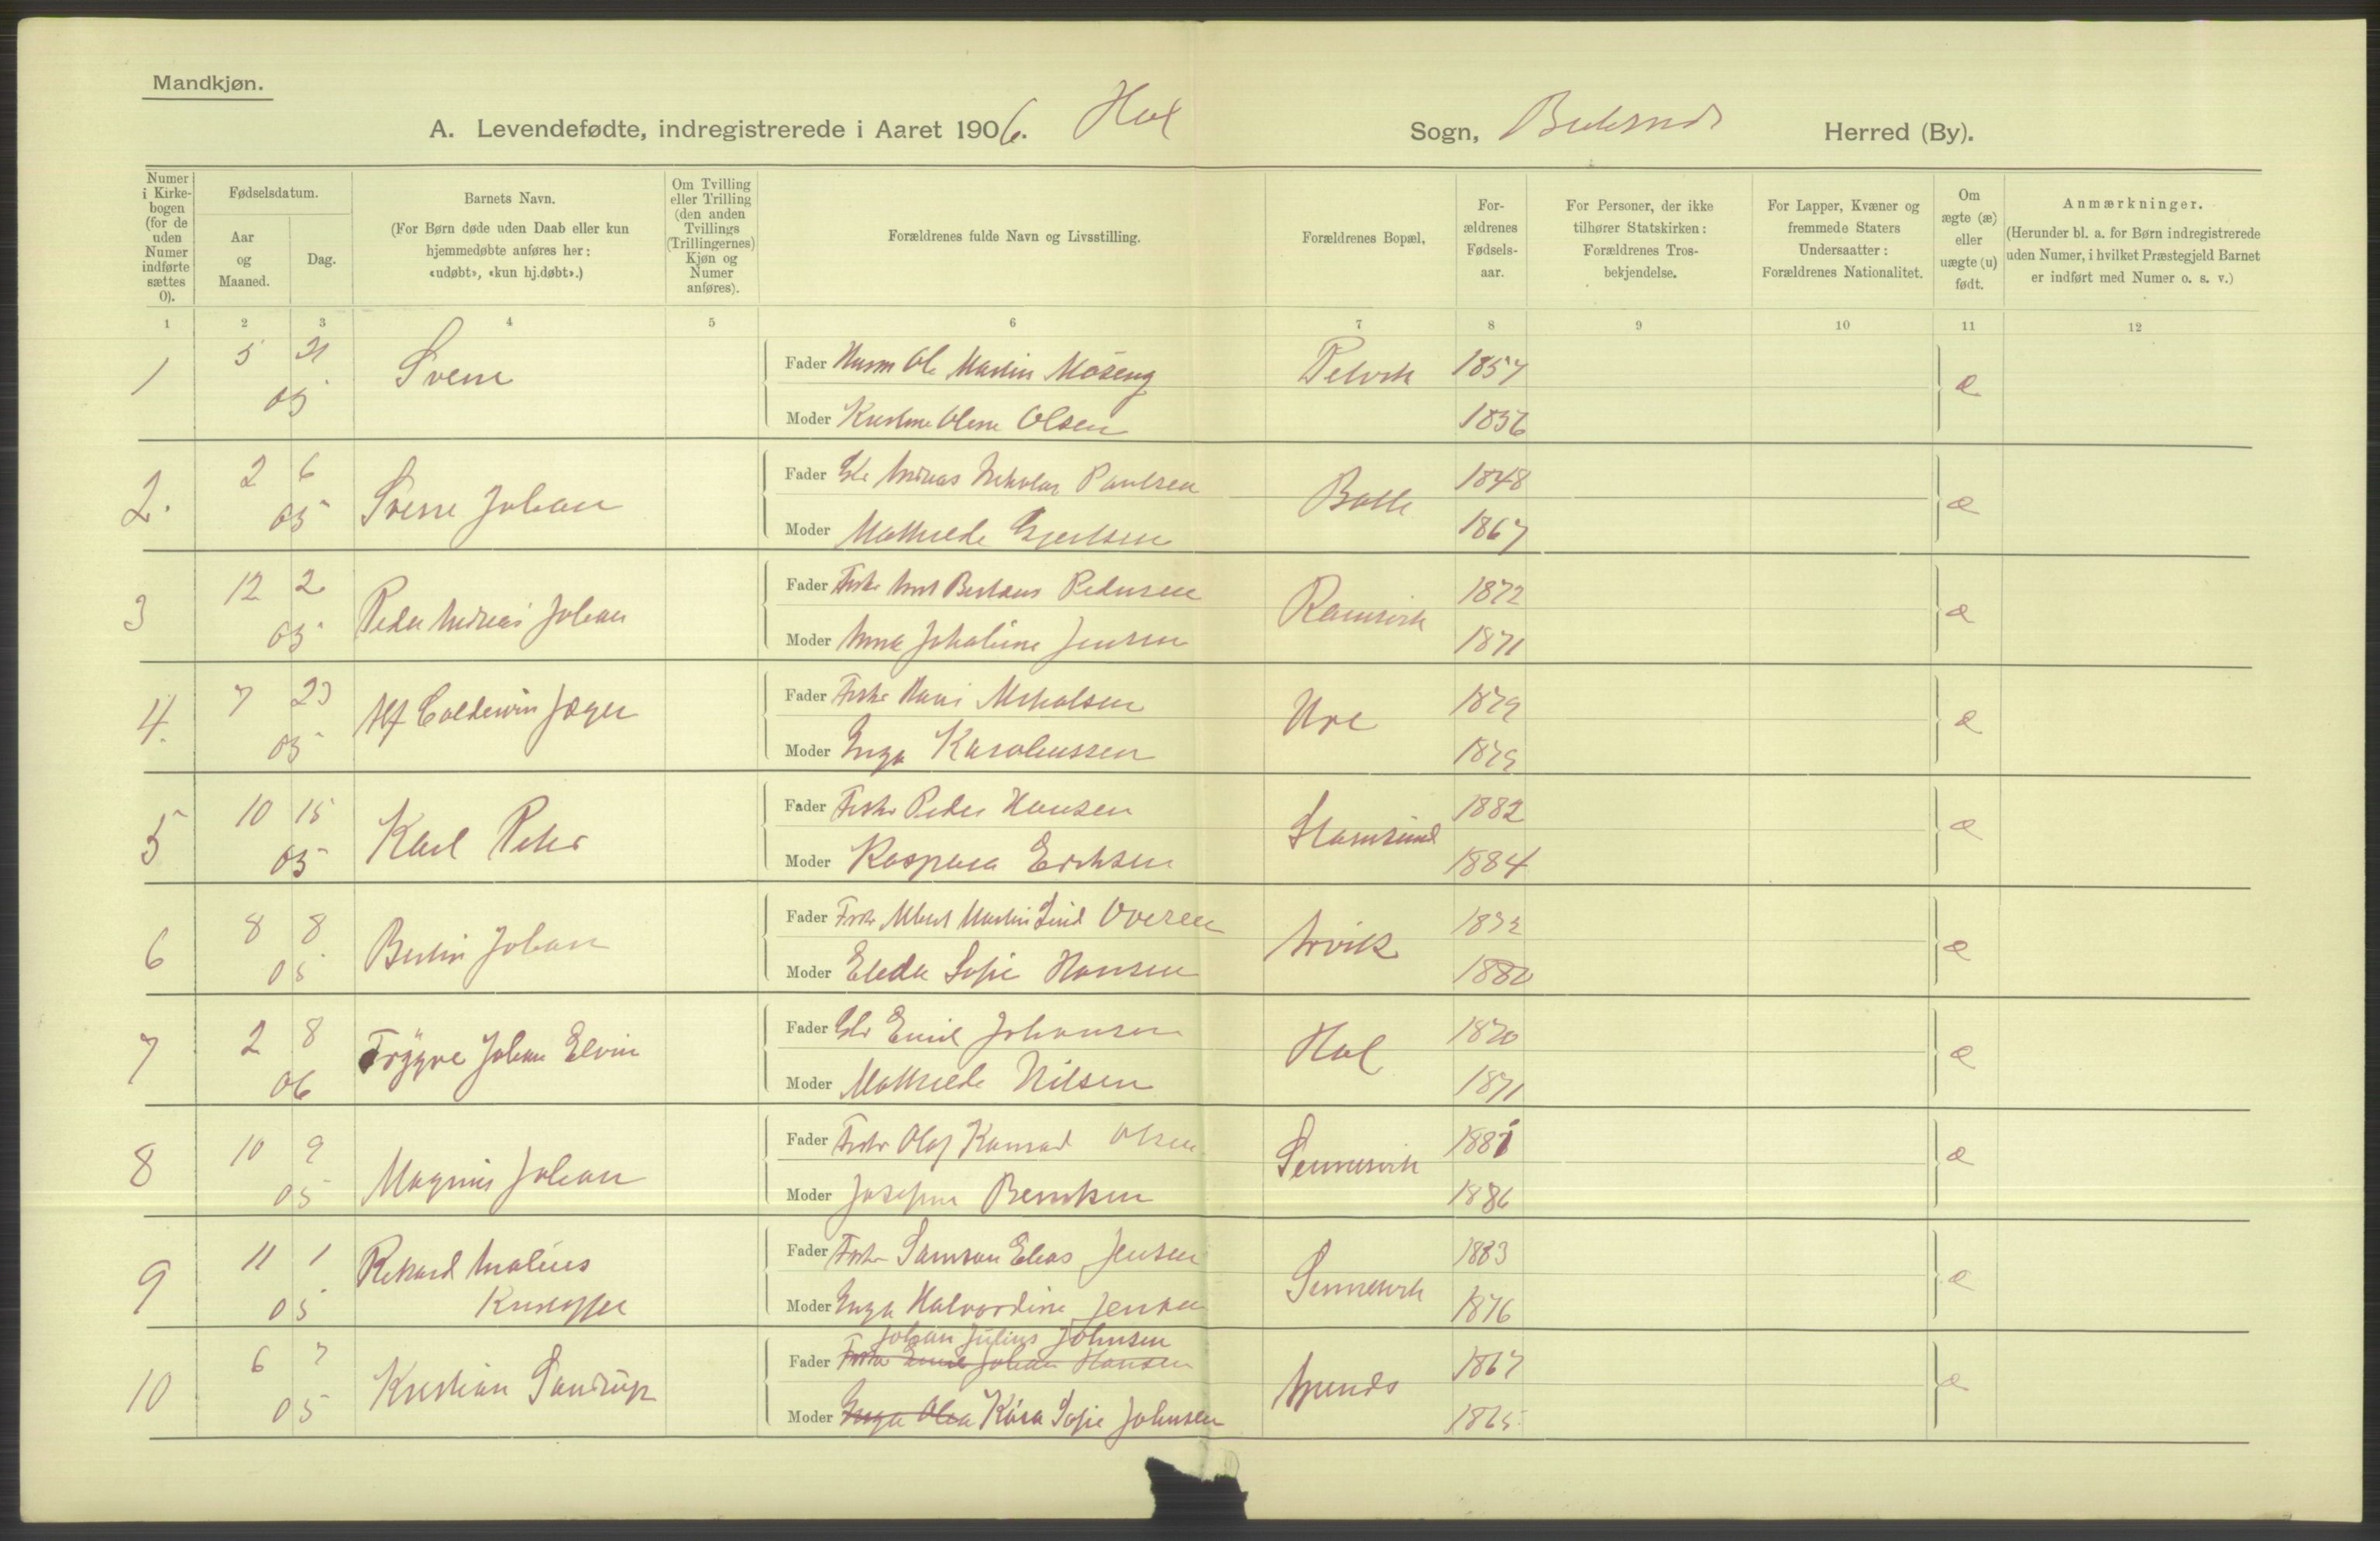 Mandkjøn.
A. Levendefødte, indregistrerede i Aaret 1906. Hol Sogn, Buksnes Herred (By).
Numer i Kirke-bogen (for de uden Numer indførte sættes 0).
Fødselsdatum.
Aar og Maaned.
Dag.
Barnets Navn.
(For Børn døde uden Daab eller kun hjemmedøbte anføres her: «udøbt», «kun hj.døbt».)
Om Tvilling eller Trilling (den anden Tvillings (Trillingernes) Kjøn og Numer anføres).
Forældrenes fulde Navn og Livsstilling.
Forældrenes Bopæl.
For-ældrenes Fødsels-aar.
For Personer, der ikke tilhører Statskirken: Forældrenes Tros-bekjendelse.
For Lapper, Kvæner og fremmede Staters Undersaatter: Forældrenes Nationalitet.
Om ægte (æ) eller uægte (u) født.
Anmærkninger.
(Herunder bl. a. for Børn indregistrerede uden Numer, i hvilket Præstegjeld Barnet er indført med Numer o. s. v.)
1 2 3 4 5 6 7 8 9 10 11 12
1 5 21 Fader Husm Ole Martin Moseng 1857
05 Sverre æ
Moder Olsen 1856
2. 2 6 Fader Andreas Nikolai Paulsen 1848
05 Sverre Johan Balle æ
Moder Mathilde Gjertsen 1867
3 12 2 Fader Fisker Pedersen 1872
05 Peder Andreas Johan Ramsvik æ
Moder Anna Jensen 1871
4. 7 23 Fader Fisker Hans 1879
05 Alf Jæger Ure æ
Moder Inga Karoliussen 1879
5 10 15 Fader Fisker Peder Hansen 1882
05 Karl Peter Stamsund æ
Moder Kaspara Eriksen 1884
6 8 8 Fader Fisker Albert Martin
05 Johan æ
Moder Sofie Hansen 1880
7 2 8 Fader Emil Johansen 1870
06 Trygve Johan Elvin Hol æ
Moder Mathilde Nilsen 1871
8 10 9 Fader Fisker Olaf Konrad Olsen 1881
05 Magnus Johan Sennesvik æ
Moder Josefine Berntsen 1886
9 11 1 Fader Fisker Samson Elias Jensen 1883
05 Rikard Kristoffer Sennesvik æ
Moder Inga Halvordine Jensen 1876
10 6 7 Johan Julius Johnsen
Fader Fisker Emil Johan Hansen 1867
05 Kristian Sandrup æ
Moder Inga Olea Kaia Sofie Johnsen 1865